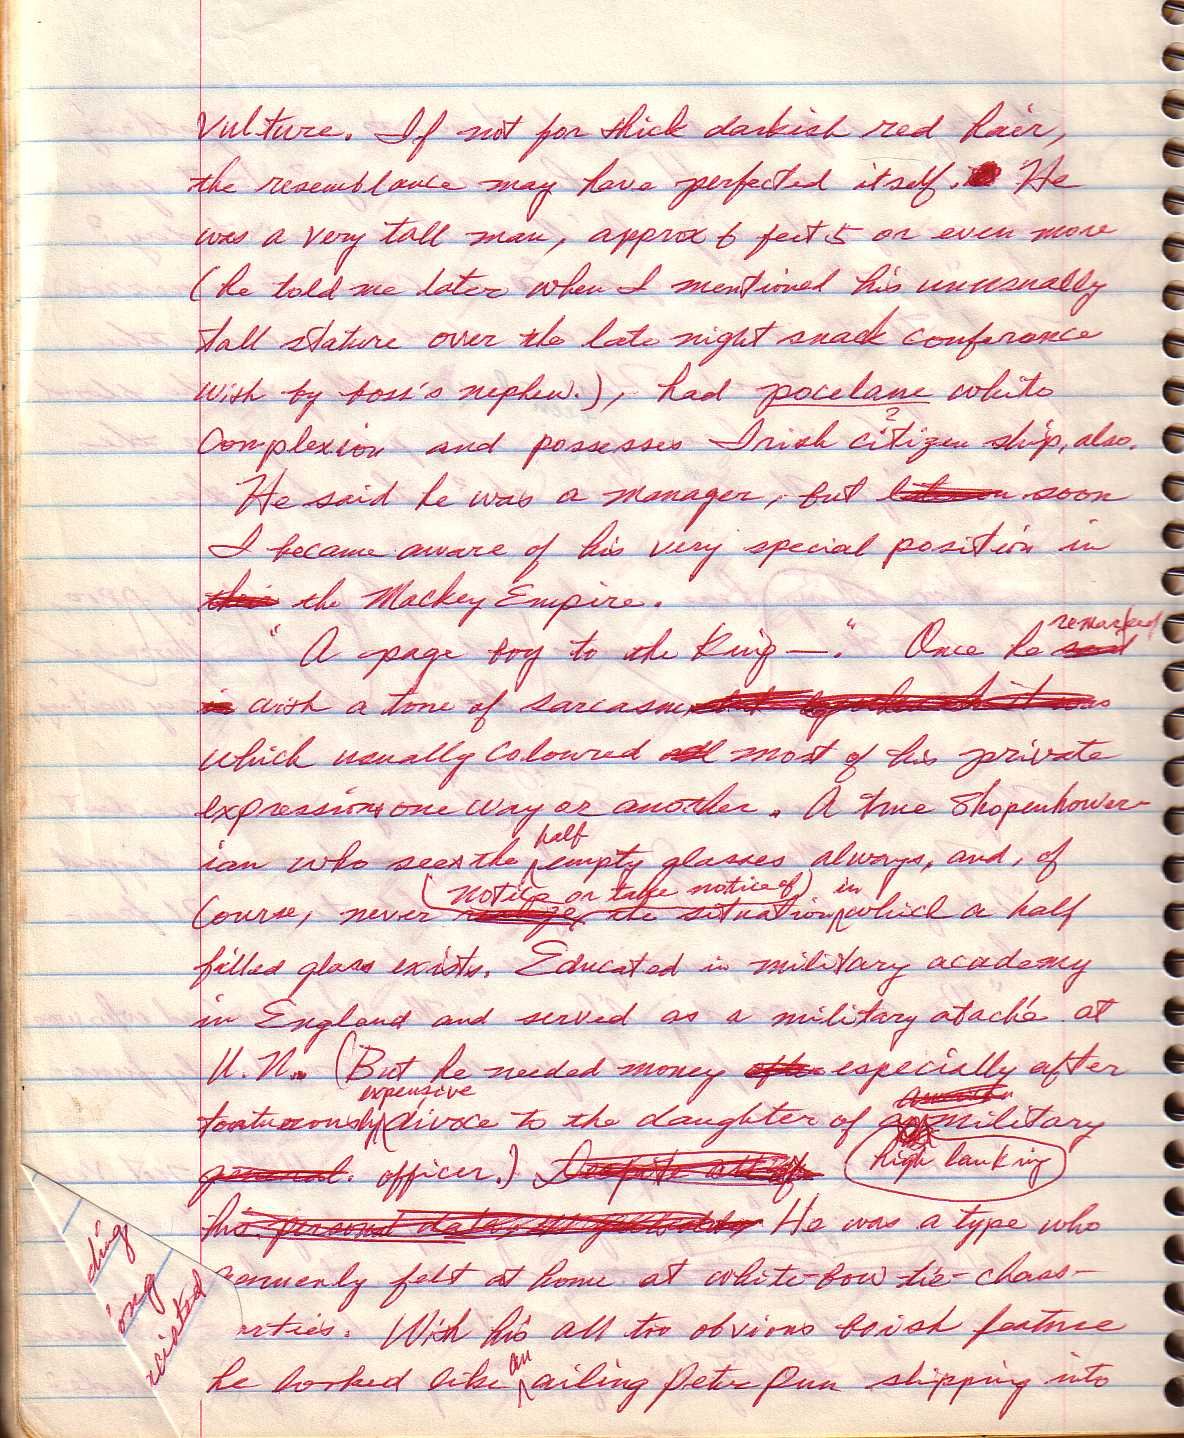 Vulture. If not for thick darkish red hair,
the resemblance may have perfected itself. He
was a very tall man, approx 6 feet 5 or even more
(he told me later when I mentioned his unusually
tall stature over the late night snack conference
with by boss's nephew.), had pocelane white
?
complexion and possesses Irish citizen ship, also.
He said he was a manager, but soon
I became aware of his very special position in
the Mackey Empire.
remarked
"A page boy to the King —." Once he said
with a tone of sarcasm, was
which usually coloured all most of his private
expressions one way or another. A true Shopenhower-
half
ian who sees the empty glasses always, and, of
(notice or take notice of) in
course, never the situation which a half
filled glass exists. Educated in military academy
in England and served as a military ataché at
U.N. (But he needed money after especially after
expensive
tortuously divorce to the daughter of a military
general. officer.) Despite all of high lanking
his personal data, He was a type who
felt at home at white-bow-tie-chass-
rties. With his all too obvious boish feature
an
he looked like ailing Peter Pun shipping into
ding
ong
ciated